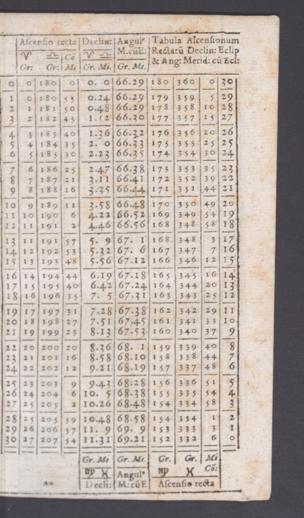 Ascensio recta Declin: Angulᵒ Tabula Ascensionum
♈ ♎ Cõ M. cũ E. Rectarũ Declin: Eclip
Gr: Gr. Mi Gr. Mi. Gr. Mi. & Ang: Merid: cũ Ecl:
0 0 180 0 0. 0 66.29 180 360 0 30
1 0 180 55 0.24 66.29 179 359 5 29
2 1 181 50 0.48 66.29 178 358 10 28
3 2 182 45 1.12 66.30 177 357 15 27
4 3 183 40 1.36 66.32 176 356 20 26
5 4 184 35 2. 0 66.33 175 355 25 25
6 5 185 30 2.23 66.35 174 354 30 24
7 6 186 25 2.47 66.38 173 353 35 23
8 7 187 21 3.11 66.41 172 352 39 22
9 8 188 16 3.25 66.44 171 351 44 21
10 9 189 11 3.58 66.48 170 350 49 20
11 10 190 6 4.22 66.52 169 349 54 19
12 11 191 2 4.46 66.56 168 348 58 18
13 11 191 57 5. 9 67. 1 168 348 3 17
14 12 192 52 5.32 67. 6 167 347 7 16
15 13 193 48 5.56 67.12 166 346 12 15
16 14 194 44 6.19 67.18 165 345 16 14
17 15 195 40 6.42 67.24 164 344 20 13
18 16 196 35 7. 5 67.31 163 343 25 12
19 17 197 31 7.28 67.38 162 342 29 11
20 18 198 27 7.51 67.45 161 341 33 10
21 19 199 23 8.13 67.53 160 340 37 9
22 20 200 20 8.36 68. 1 159 339 40 8
23 21 201 16 8.58 68.10 158 338 44 7
24 22 202 12 9.21 68.19 157 337 48 6
25 23 203 9 9.43 68.28 156 336 51 5
26 24 204 6 10. 5 68.38 155 335 54 4
27 25 205 2 10.26 68.48 154 334 58 3
28 25 205 59 10.48 68.58 154 334 1 2
29 26 206 57 11. 9 69. 9 153 333 3 1
30 27 207 54 11.31 69.21 152 332 6 0
Gr. Mi Gr. Mi Gr. Gr. Mi
♍ ♓ Angulᵒ ♍ ♓ Cõ:
Decli: M. cũ E Ascensio recta